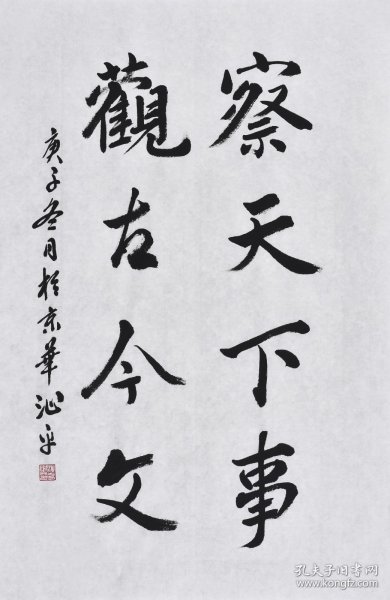 察天下事
觀古今文
庚子冬月於京華沁平
孔夫子旧书网
www.kongfz.com